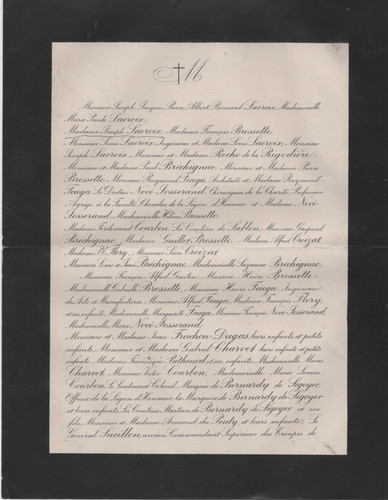 M
Messieurs Joseph, Jacques, Pierre, Albert, Bernard Lacroix, Mademoiselle
Marie Paule Lacroix,
Madame Joseph Lacroix, Madame François Brossette,
Monsieur Louis Lacroix, Ingénieur et Madame Louis Lacroix, Monsieur
Joseph Lacroix, Monsieur et Madame Roche de la Rigodière,
Monsieur et Madame Paul Bréchignac, Monsieur et Madame Pierre
Brossette, Monsieur Raymond Tauga, Architecte et Madame Raymond
Tauga, Le Docteur Nové-Josserand, Chirurgien de la Charité, Professeur
Agrégé à la Faculté, Chevalier de la Légion d'Honneur et Madame Nové-
Josserand, Mademoiselle Hélène Brossette,
Madame Ferdinand Courbon, La Comtesse de Sablon, Monsieur Gaspard
Bréchignac, Madame Guillot-Brossette, Madame Alfred Crozat
Madame Flory, Monsieur Léon Crozat,
Messieurs Louis et Jean Bréchignac, Mademoiselle Suzanne Bréchignac,
Messieurs François, Alfred, Gaston, Maurice, Henri Brossette,
Mademoiselle Gabrielle Brossette, Monsieur Henri Tauga, Ingénieur
des Arts et Manufactures, Monsieur Alfred Tauga, Madame François Flory,
et ses enfants, Mademoiselle Marguerite Tauga, Monsieur François Nové-Josserand,
Mademoiselle Marie Nové-Josserand,
Monsieur et Madame Jean Frachon-Dugas, leurs enfants et petits
enfants, Monsieur et Madame Gabriel Charvet, leurs enfants et petits
enfants, Madame Béthenod et ses enfants, Mademoiselle Marie
Charvet, Monsieur Victor Courbon, Mademoiselle Marie Louise
Courbon, le Lieutenant Colonel Marquis de Bernardy de Sigoyer,
Officier de la Légion d'Honneur, la Marquise de Bernardy de Sigoyer
et leurs enfants, La Comtesse Martian de Bernardy de Sigoyer et son
fils, Monsieur et Madame Armand du Peuty et leurs enfants, Le
Général Sucillon, ancien Commandant Supérieur des Troupes de